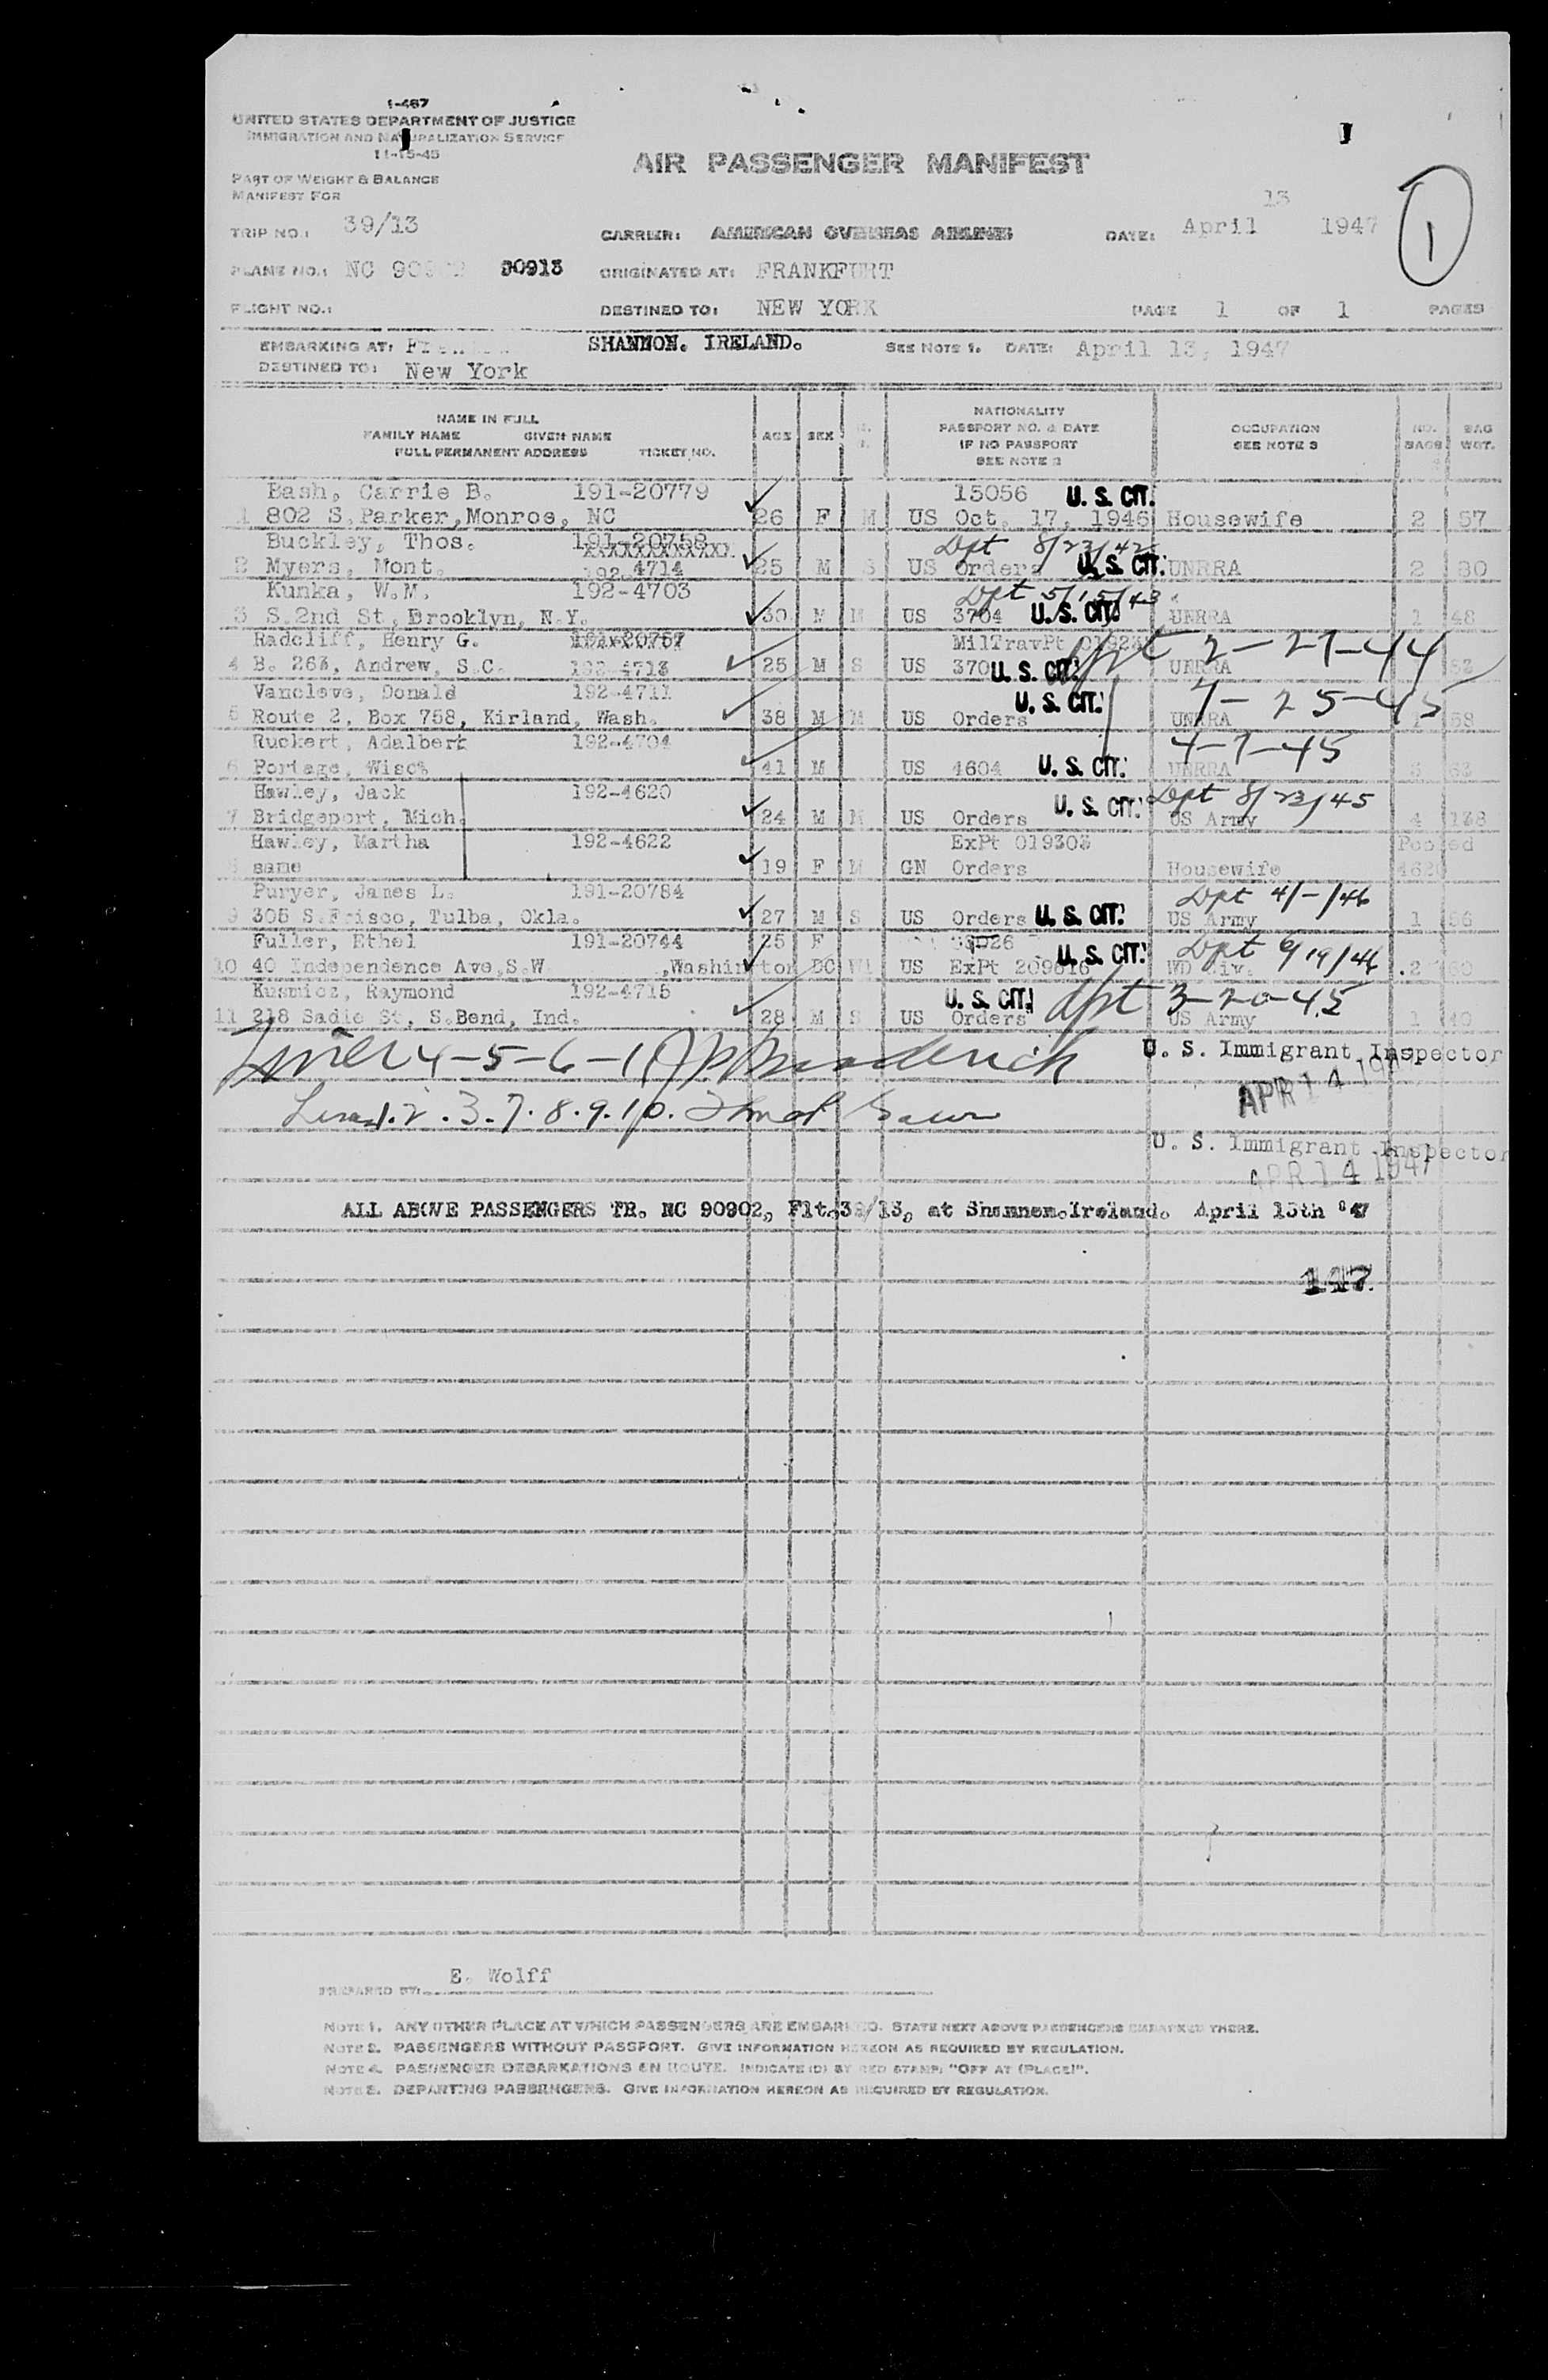 1-467
UNITED STATES DEPARTMENT OF JUSTICE
IMMIGRATION AND NATURALIZATION SERVICE
11-15-45
AIR PASSENGER MANIFEST
PART OF WEIGHT & BALANCE
MANIFEST FOR
13
TRIP NO.: 39/13 CARRIER: AMERICAN OVERSEAS AIRLINES DATE: April 1947 1
PLANE NO.: NC 90902 90913 ORIGINATED AT: FRANKFURT
FLIGHT NO.: DESTINED TO: NEW YORK PAGE 1 OF 1 PAGES
EMBARKING AT: SHANNON. IRELAND. SEE NOTE 1. DATE: April 13, 1947
DESTINED TO: New York
NAME IN FULL
FAMILY NAME GIVEN NAME
FULL PERMANENT ADDRESS TICKET NO.
AGE SEX
NATIONALITY
PASSPORT NO. & DATE
IF NO PASSPORT
SEE NOTE 2
OCCUPATION
SEE NOTE 3
NO. BAGS
BAG WGT.
Bash, Carrie B. 191-20779 15056 U. S. CIT.
1 802 S.Parker,Monroe, NC 26 F M US Oct. 17, 1946 Housewife 2 57
Buckley, Thos. 191-20758 Dpt 8/23/42
2 Myers, Mont. 192-4714 25 M S US Orders U. S. CIT. UNRRA 2 80
Kunka, W.M. 192-4703 Dpt 5/15/43
3 S.2nd St,Brooklyn, N.Y. 30 M M US 3704 U. S. CIT. UNRRA 1 48
Radcliff, Henry G. 191-20757 MilTravPt dpt 2-27-44
4 B. 263, Andrew, S.C. 192-4713 25 M S US 370 U. S. CIT. UNRRA 53
Vancleve, Donald 192-4711 U. S. CIT.
5 Route 2, Box 758, Kirland, Wash. 38 M M US Orders UNRRA 4-25-45
Ruckert, Adalbert 192-4704 4-7-45
6 Portage, Wisc. 41 M US 4604 U. S. CIT. UNRRA 63
Hawley, Jack 192-4620 Dpt 8/23/45
7 Bridgeport, Mich. 24 M M US Orders U. S. CIT. US Army 4 138
Hawley, Martha 192-4622 ExPt 019303 Pooled
8 same 19 F M GN Orders Housewife 4620
Puryer, James L. 191-20784 Dpt 4/-/46
9 305 S.Frisco, Tulba, Okla. 27 M S US Orders U. S. CIT. US Army 1 56
Fuller, Ethel 191-20744 25 F U. S. CIT. Dpt 6/19/46
10 40 Independence Ave,S.W. ,Washington DC Wi US ExPt 209616 WD Civ. 2 60
Kusmicz, Raymond 192-4715 U. S. CIT. dpt 3-20-45
11 218 Sadie St, S.Bend, Ind. 28 M S US Orders US Army 1 40
4-5-6-11 U. S. Immigrant Inspector
APR 14 1947
Lines 1.2.3.7.8.9.10.
U. S. Immigrant Inspector
APR 14 1947
ALL ABOVE PASSENGERS TR. NC 90902, Flt.39/13, at Shannon.Ireland. April 13th '47
147
PREPARED BY: E. Wolff
NOTE 1. ANY OTHER PLACE AT WHICH PASSENGERS ARE EMBARKED. STATE NEXT ABOVE PASSENGERS EMBARKED THERE.
NOTE 2. PASSENGERS WITHOUT PASSPORT. GIVE INFORMATION HEREON AS REQUIRED BY REGULATION.
NOTE 4. PASSENGER DEBARKATIONS EN ROUTE. INDICATE (D) BY RED STAMP: "OFF AT (PLACE)".
NOTE 3. DEPARTING PASSENGERS. GIVE INFORMATION HEREON AS REQUIRED BY REGULATION.